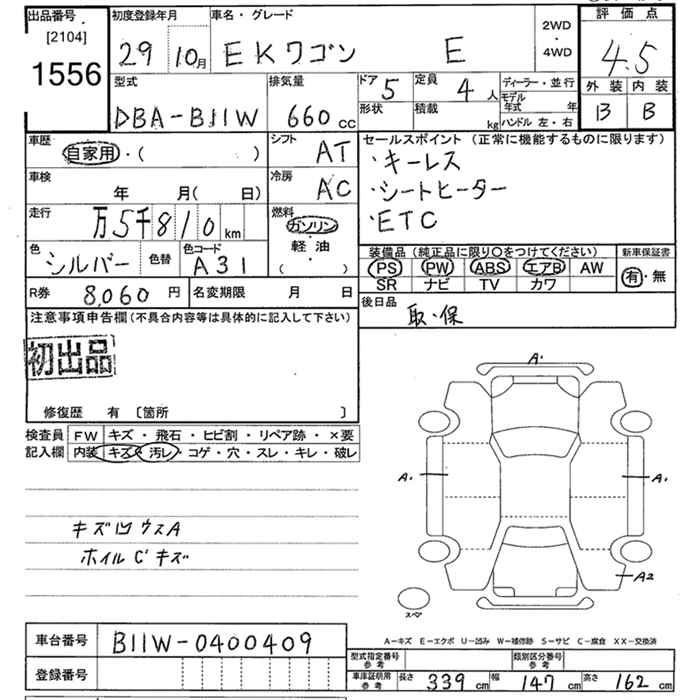 出品番号 初度登録年月 車名・グレード 2WD・4WD 評価点
[2104] 29 10月 EKワゴン E 4.5
1556 外装 内装
B B
型式 排気量 ドア 5 定員 4人 ディーラー・並行
DBA-B11W 660cc 形状 積載 kg モデル年式 年
ハンドル 左・右
車歴 シフト セールスポイント (正常に機能するものに限ります)
自家用・( ) AT ・キーレス
車検 年 月( 日) 冷房 AC ・シートヒーター
走行 万5千810km 燃料 ガソリン ・ETC
軽油
・( )
色 シルバー 色替 色コード A31
装備品 (純正品に限り○をつけてください) 新車保証書
PS PW ABS エアB AW 有・無
SR ナビ TV カワ
R券 8,060円 名変期限 月 日 後日品
取・保
注意事項申告欄(不具合内容等は具体的に記入して下さい)
初出品
修復歴 有 [箇所 ]
検査員 FW キズ・飛石・ヒビ割・リペア跡・×要
記入欄 内装 キズ・汚レ・コゲ・穴・スレ・キレ・破レ
キズ凹ウスA
ホイルC'キズ
A'
A'
A'
A2
スペア
A-キズ E-エクボ U-凹み W-補修跡 S-サビ C-腐食 XX-交換済
車台番号 B11W-0400409
登録番号
型式指定番号 参考 類別区分番号 参考
車庫証明用 参考 長さ 339cm 幅 147cm 高さ 162cm